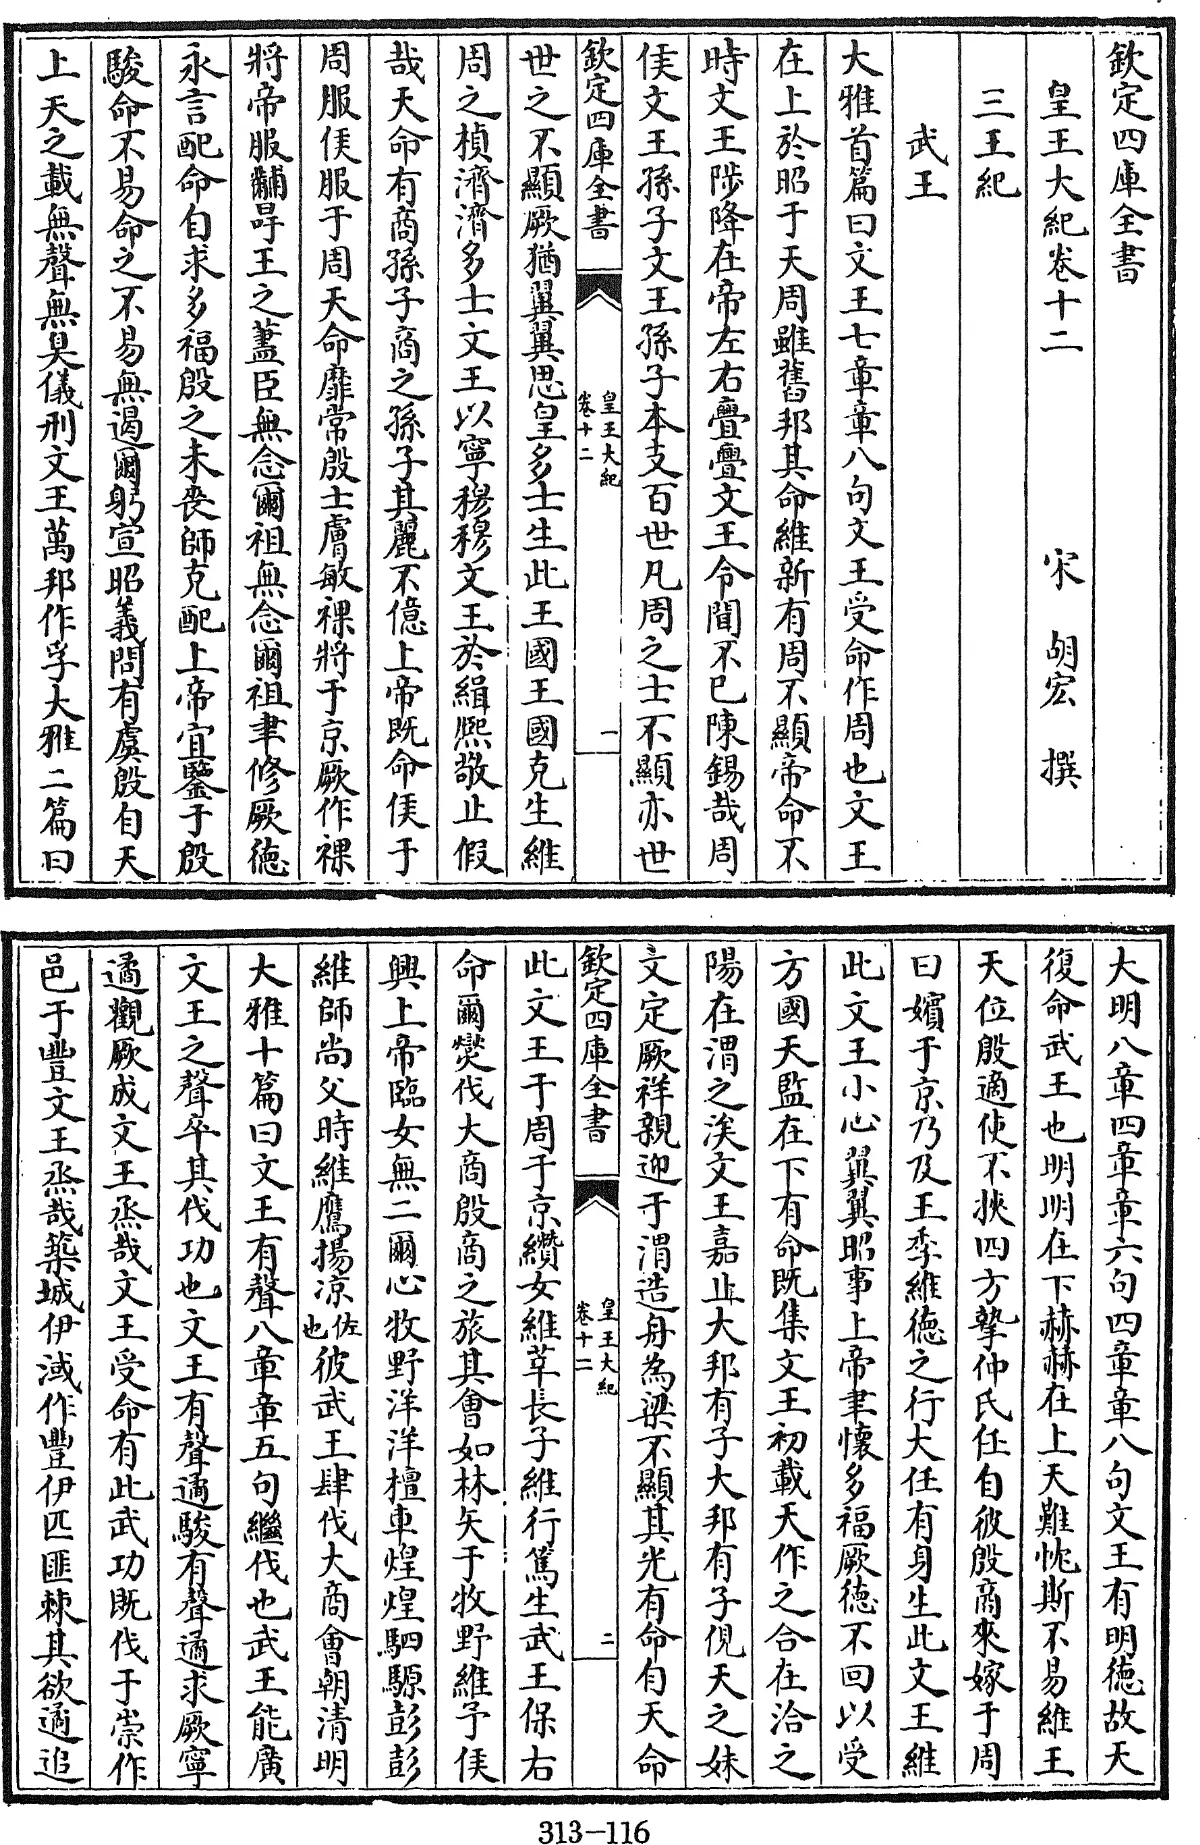 欽定四庫全書
皇王大紀卷十二　宋　胡宏　撰
三王紀
武王
大雅首篇曰文王七章章八句文王受命作周也文王
在上於昭于天周雖舊邦其命維新有周不顯帝命不
時文王陟降在帝左右亹亹文王令聞不已陳錫哉周
侯文王孫子文王孫子本支百世凡周之士不顯亦世
欽定四庫全書
皇王大紀
卷十二
一
世之不顯厥猶翼翼思皇多士生此王國王國克生維
周之楨濟濟多士文王以寧穆穆文王於緝熙敬止假
哉天命有商孫子商之孫子其麗不億上帝既命侯于
周服侯服于周天命靡常殷士膚敏祼將于京厥作祼
將帝服黼冔王之藎臣無念爾祖無念爾祖聿修厥德
永言配命自求多福殷之未喪師克配上帝宜鑒于殷
駿命不易命之不易無遏爾躬宣昭義問有虞殷自天
上天之載無聲無臭儀刑文王萬邦作孚大雅二篇曰
大明八章四章章六句四章章八句文王有明德故天
復命武王也明明在下赫赫在上天難忱斯不易維王
天位殷適使不挾四方摯仲氏任自彼殷商來嫁于周
曰嬪于京乃及王季維德之行大任有身生此文王維
此文王小心翼翼昭事上帝聿懷多福厥德不回以受
方國天監在下有命既集文王初載天作之合在洽之
陽在渭之涘文王嘉止大邦有子大邦有子俔天之妹
文定厥祥親迎于渭造舟為梁不顯其光有命自天命
欽定四庫全書
皇王大紀
卷十二
二
此文王于周于京纘女維莘長子維行篤生武王保右
命爾燮伐大商殷商之旅其會如林矢于牧野維予侯
興上帝臨女無二爾心牧野洋洋檀車煌煌駟騵彭彭
維師尚父時維鷹揚凉佐也彼武王肆伐大商會朝清明
大雅十篇曰文王有聲八章章五句繼伐也武王能廣
文王之聲卒其伐功也文王有聲遹駿有聲遹求厥寧
遹觀厥成文王烝哉文王受命有此武功既伐于崇作
邑于豐文王烝哉築城伊淢作豐伊匹匪棘其欲遹追
313-116